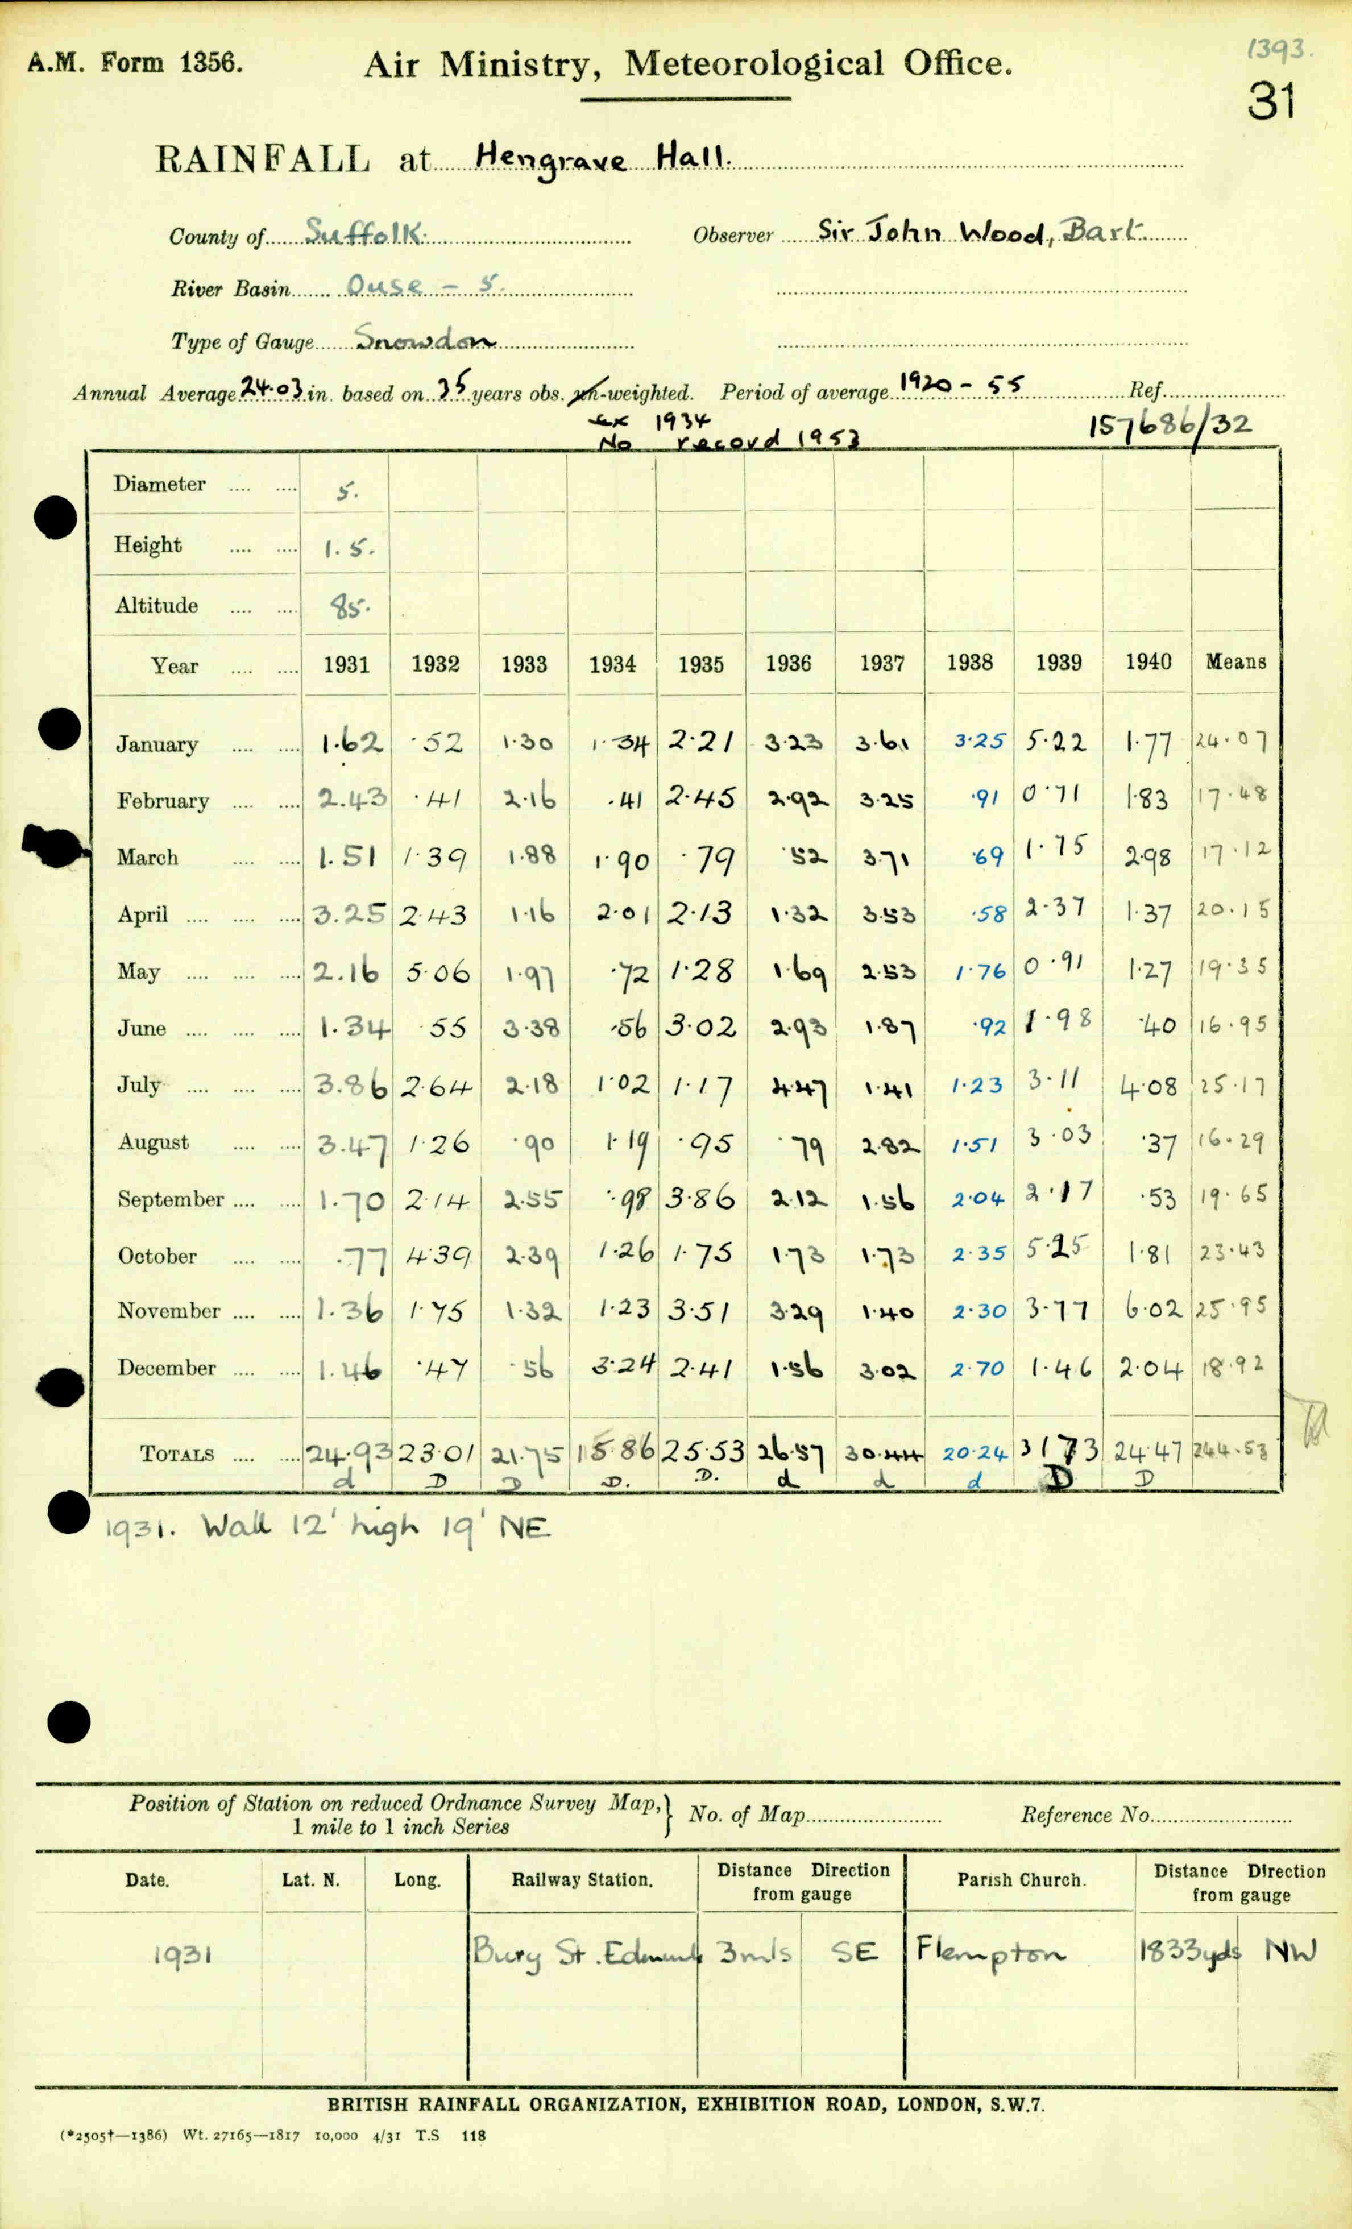 1393.
A.M. Form 1356. Air Ministry, Meteorological Office.
31
RAINFALL at Hengrave Hall.
County of Suffolk. Observer Sir John Wood, Bart.
River Basin Ouse - 5.
Type of Gauge Snowdon
Annual Average 24.03 in. based on 35 years obs. un-weighted. Period of average 1920 - 55 Ref.
ex 1934 157686/32
No record 1953
Diameter .... .... 5.
Height .... .... 1.5.
Altitude .... .... 85.
Year .... .... 1931 1932 1933 1934 1935 1936 1937 1938 1939 1940 Means
January .... .... 1.62 .52 1.30 1.34 2.21 3.23 3.61 3.25 5.22 1.77 24.07
February .... .... 2.43 .41 2.16 .41 2.45 2.92 3.25 .91 0.71 1.83 17.48
March .... .... 1.51 1.39 1.88 1.90 .79 .52 3.71 .69 1.75 2.98 17.12
April .... .... .... 3.25 2.43 1.16 2.01 2.13 1.32 3.53 .58 2.37 1.37 20.15
May .... .... .... 2.16 5.06 1.97 .72 1.28 1.69 2.53 1.76 0.91 1.27 19.35
June .... .... .... 1.34 .55 3.38 .56 3.02 2.93 1.87 .92 1.98 .40 16.95
July .... .... .... 3.86 2.64 2.18 1.02 1.17 4.47 1.41 1.23 3.11 4.08 25.17
August .... .... 3.47 1.26 .90 1.19 .95 .79 2.82 1.51 3.03 .37 16.29
September .... .... 1.70 2.14 2.55 .98 3.86 2.12 1.56 2.04 2.17 .53 19.65
October .... .... .77 4.39 2.39 1.26 1.75 1.73 1.73 2.35 5.25 1.81 23.43
November .... .... 1.36 1.75 1.32 1.23 3.51 3.29 1.40 2.30 3.77 6.02 25.95
December .... .... 1.46 .47 .56 3.24 2.41 1.56 3.02 2.70 1.46 2.04 18.92
TOTALS .... .... 24.93 23.01 21.75 15.86 25.53 26.57 30.44 20.24 31.73 24.47 244.53
d D D D. D. d d d D D
1931. Wall 12' high 19' NE
Position of Station on reduced Ordnance Survey Map, } No. of Map Reference No.
1 mile to 1 inch Series
Date. Lat. N. Long. Railway Station. Distance Direction from gauge Parish Church. Distance Direction from gauge
1931 Bury St. Edmunds 3 mls SE Flempton 1833 yds NW
BRITISH RAINFALL ORGANIZATION, EXHIBITION ROAD, LONDON, S.W.7.
(*2505†—1386) Wt. 27165—1817 10,000 4/31 T.S 118